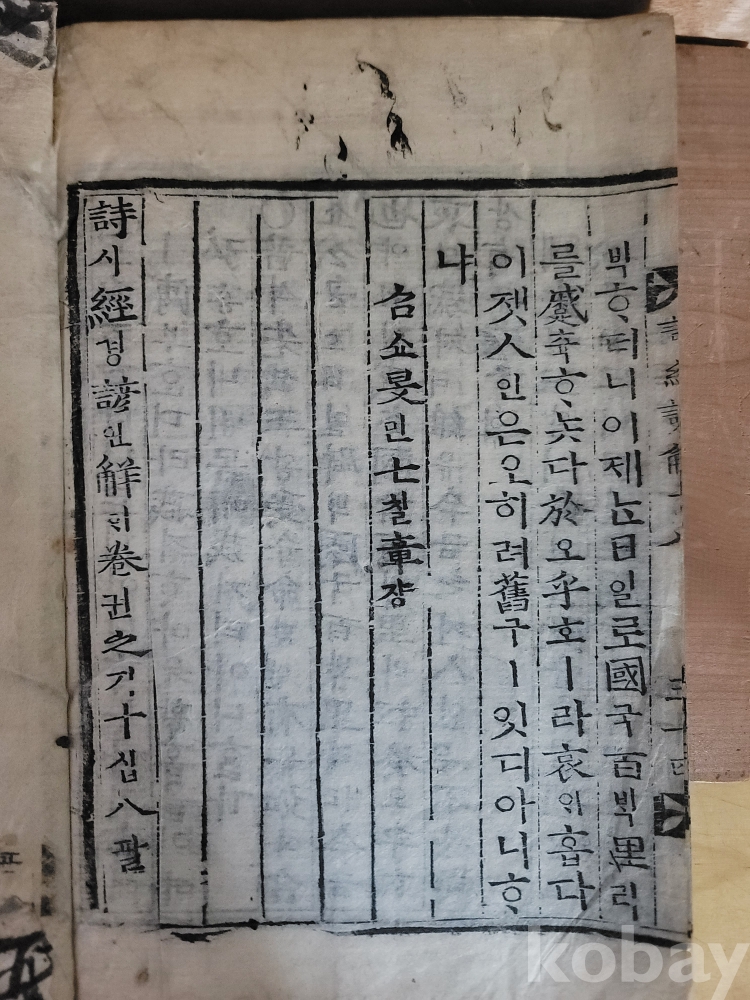 박ᄒᆞ더니이제ᄂᆞᆫ日일로國국百ᄇᆡᆨ里리
를蹙축ᄒᆞ놋다於오乎호ㅣ라哀ᄋᆡ흡다
이젯人인은오히려舊구ㅣ잇디아니ᄒᆞ
냐
召쇼旻민七칠章쟝
詩시經경諺언解ᄒᆡ卷권之지十십八팔
詩經諺解
kobay